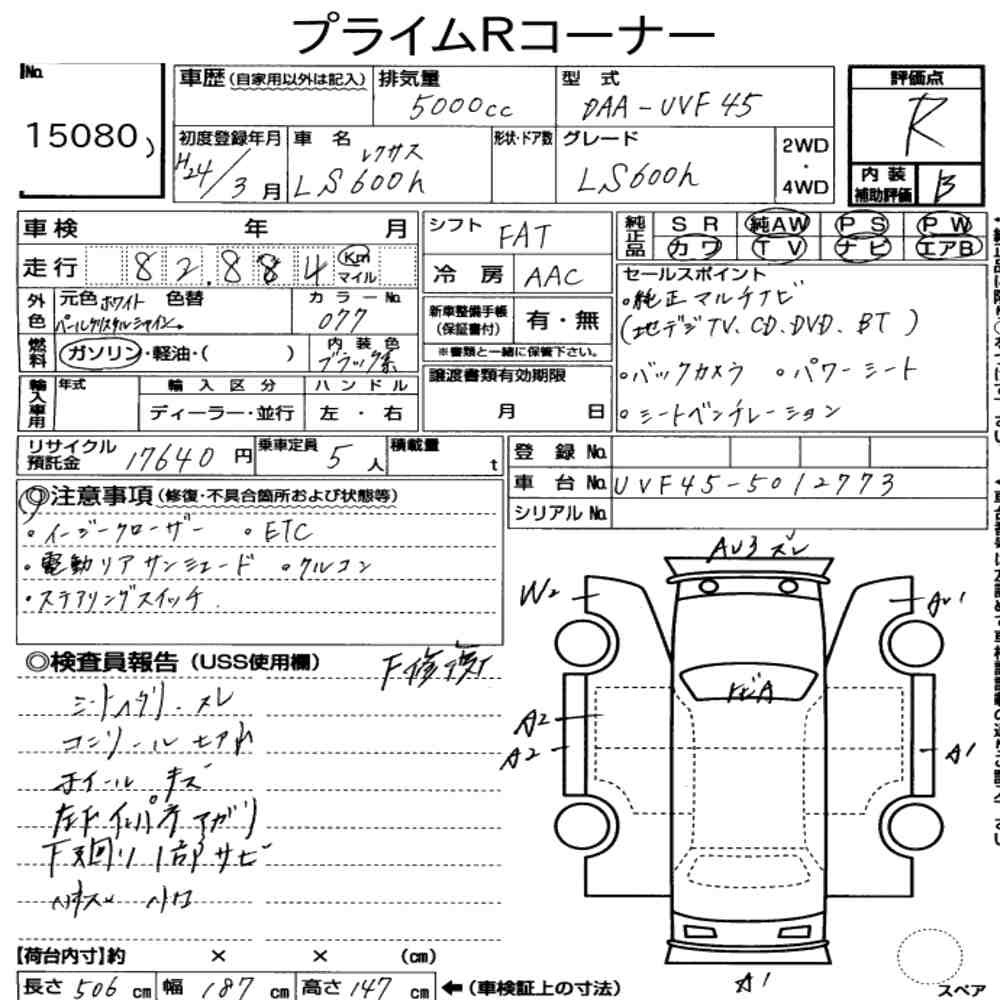 プライムRコーナー
No. 15080
車歴(自家用以外は記入)
排気量 5000cc
型式 DAA-UVF45
評価点 R
初度登録年月 H24/3月
車名 レクサス LS600h
形状・ドア数
グレード LS600h
2WD・4WD
内装補助評価 B
車検 年 月
シフト FAT
純正品 SR 純AW PS PW
カワ TV ナビ エアB
走行 82,884 Km マイル
冷房 AAC
セールスポイント
・純正マルチナビ
(地デジTV、CD、DVD、BT)
・バックカメラ ・パワーシート
・シートベンチレーション
外色 元色 ホワイトパールクリスタルシャイン 色替
カラーNo. 077
新車整備手帳(保証書付) 有・無
※書類と一緒に保管下さい。
燃料 ガソリン・軽油・( )
内装色 ブラック系
譲渡書類有効期限 月 日
輸入車用 年式 輸入区分 ハンドル
ディーラー・並行 左・右
リサイクル預託金 17640円
乗車定員 5人
積載量 t
登録No.
車台No. UVF45-5012773
シリアルNo.
◎注意事項(修復・不具合箇所および状態等)
・イージークローザー ・ETC
・電動リアサンシェード ・クルコン
・ステアリングスイッチ
◎検査員報告(USS使用欄)
F修復
シートヘタリ・スレ
コンソール
ホイール キズ
下廻り1部サビ
AU3 ズレ
W2
AU1
トビA
A2
A2
A1
A1
スペア
【荷台内寸】約 × × (cm)
長さ 506cm 幅 187cm 高さ 147cm ←(車検証上の寸法)